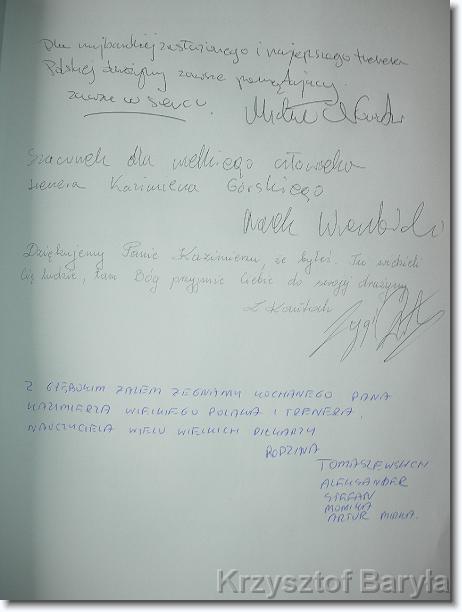 Dla najbardziej zasłużonego i najlepszego trenera
Polskiej drużyny zawsze pamiętający
zawsze w sercu.
Szacunek dla wielkiego człowieka
trenera Kazimierza Górskiego
Marek
Dziękujemy Panie Kazimierzu, że byłeś. Tu wielbili
Cię ludzie, tam Bóg przyjmie Ciebie do swojej drużyny
Z GŁĘBOKIM ŻALEM ŻEGNAMY KOCHANEGO PANA
KAZIMIERZA WIELKIEGO POLAKA I TRENERA.
NAUCZYCIELA WIELU WIELKICH PIŁKARZY
RODZINA
TOMASZEWSKICH
ALEKSANDER
STEFAN
MONIKA
ARTUR MIRKA.
Krzysztof Baryła